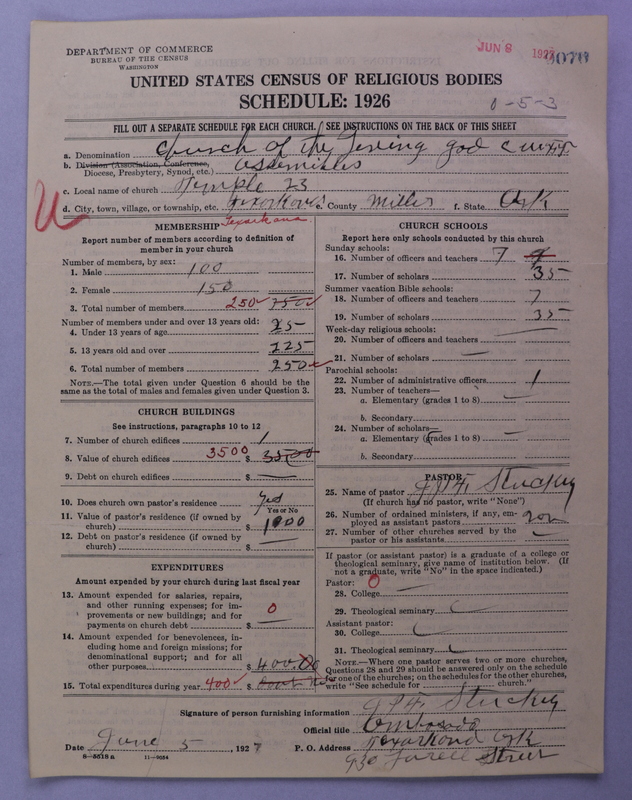 DEPARTMENT OF COMMERCE
BUREAU OF THE CENSUS
WASHINGTON
JUN 8 1927
UNITED STATES CENSUS OF RELIGIOUS BODIES
SCHEDULE: 1926
0-5-3
FILL OUT A SEPARATE SCHEDULE FOR EACH CHURCH. SEE INSTRUCTIONS ON THE BACK OF THIS SHEET
a. Denomination Church of the Living god
b. Division (Association, Conference, Diocese, Presbytery, Synod, etc.) assemblies
c. Local name of church Temple 23
d. City, town, village, or township, etc. Texarkana e. County Miller f. State Ark
Texarkana
MEMBERSHIP
Report number of members according to definition of
member in your church
Number of members, by sex:
1. Male 100
2. Female 150
3. Total number of members 250
Number of members under and over 13 years old:
4. Under 13 years of age 25
5. 13 years old and over 225
6. Total number of members 250
NOTE.—The total given under Question 6 should be the
same as the total of males and females given under Question 3.
CHURCH BUILDINGS
See instructions, paragraphs 10 to 12
7. Number of church edifices 1
8. Value of church edifices 3500 $ 3500
9. Debt on church edifices $
10. Does church own pastor's residence yes
Yes or No
11. Value of pastor's residence (if owned by
church) $ 1000
12. Debt on pastor's residence (if owned by
church) $
EXPENDITURES
Amount expended by your church during last fiscal year
13. Amount expended for salaries, repairs,
and other running expenses; for im-
provements or new buildings; and for
payments on church debt $ 0
14. Amount expended for benevolences, in-
cluding home and foreign missions; for
denominational support; and for all
other purposes $ 400.00
15. Total expenditures during year 400 $
CHURCH SCHOOLS
Report here only schools conducted by this church
Sunday schools:
16. Number of officers and teachers 7
17. Number of scholars 35
Summer vacation Bible schools:
18. Number of officers and teachers 7
19. Number of scholars 35
Week-day religious schools:
20. Number of officers and teachers
21. Number of scholars
Parochial schools:
22. Number of administrative officers 1
23. Number of teachers—
a. Elementary (grades 1 to 8)
b. Secondary
24. Number of scholars—
a. Elementary (grades 1 to 8)
b. Secondary
PASTOR
25. Name of pastor Stuckey
(If church has no pastor, write "None")
26. Number of ordained ministers, if any, em-
ployed as assistant pastors
27. Number of other churches served by the
pastor or his assistants
If pastor (or assistant pastor) is a graduate of a college or
theological seminary, give name of institution below. (If
not a graduate, write "No" in the space indicated.)
Pastor: 0
28. College
29. Theological seminary
Assistant pastor:
30. College
31. Theological seminary
NOTE.—Where one pastor serves two or more churches,
Questions 28 and 29 should be answered only on the schedule
for one of the churches; on the schedules for the other churches,
write "See schedule for church."
Signature of person furnishing information Stuckey
Official title
Date June 5, 1927 P. O. Address Texarkana Ark
930 Street
8—5518 a 11—9034